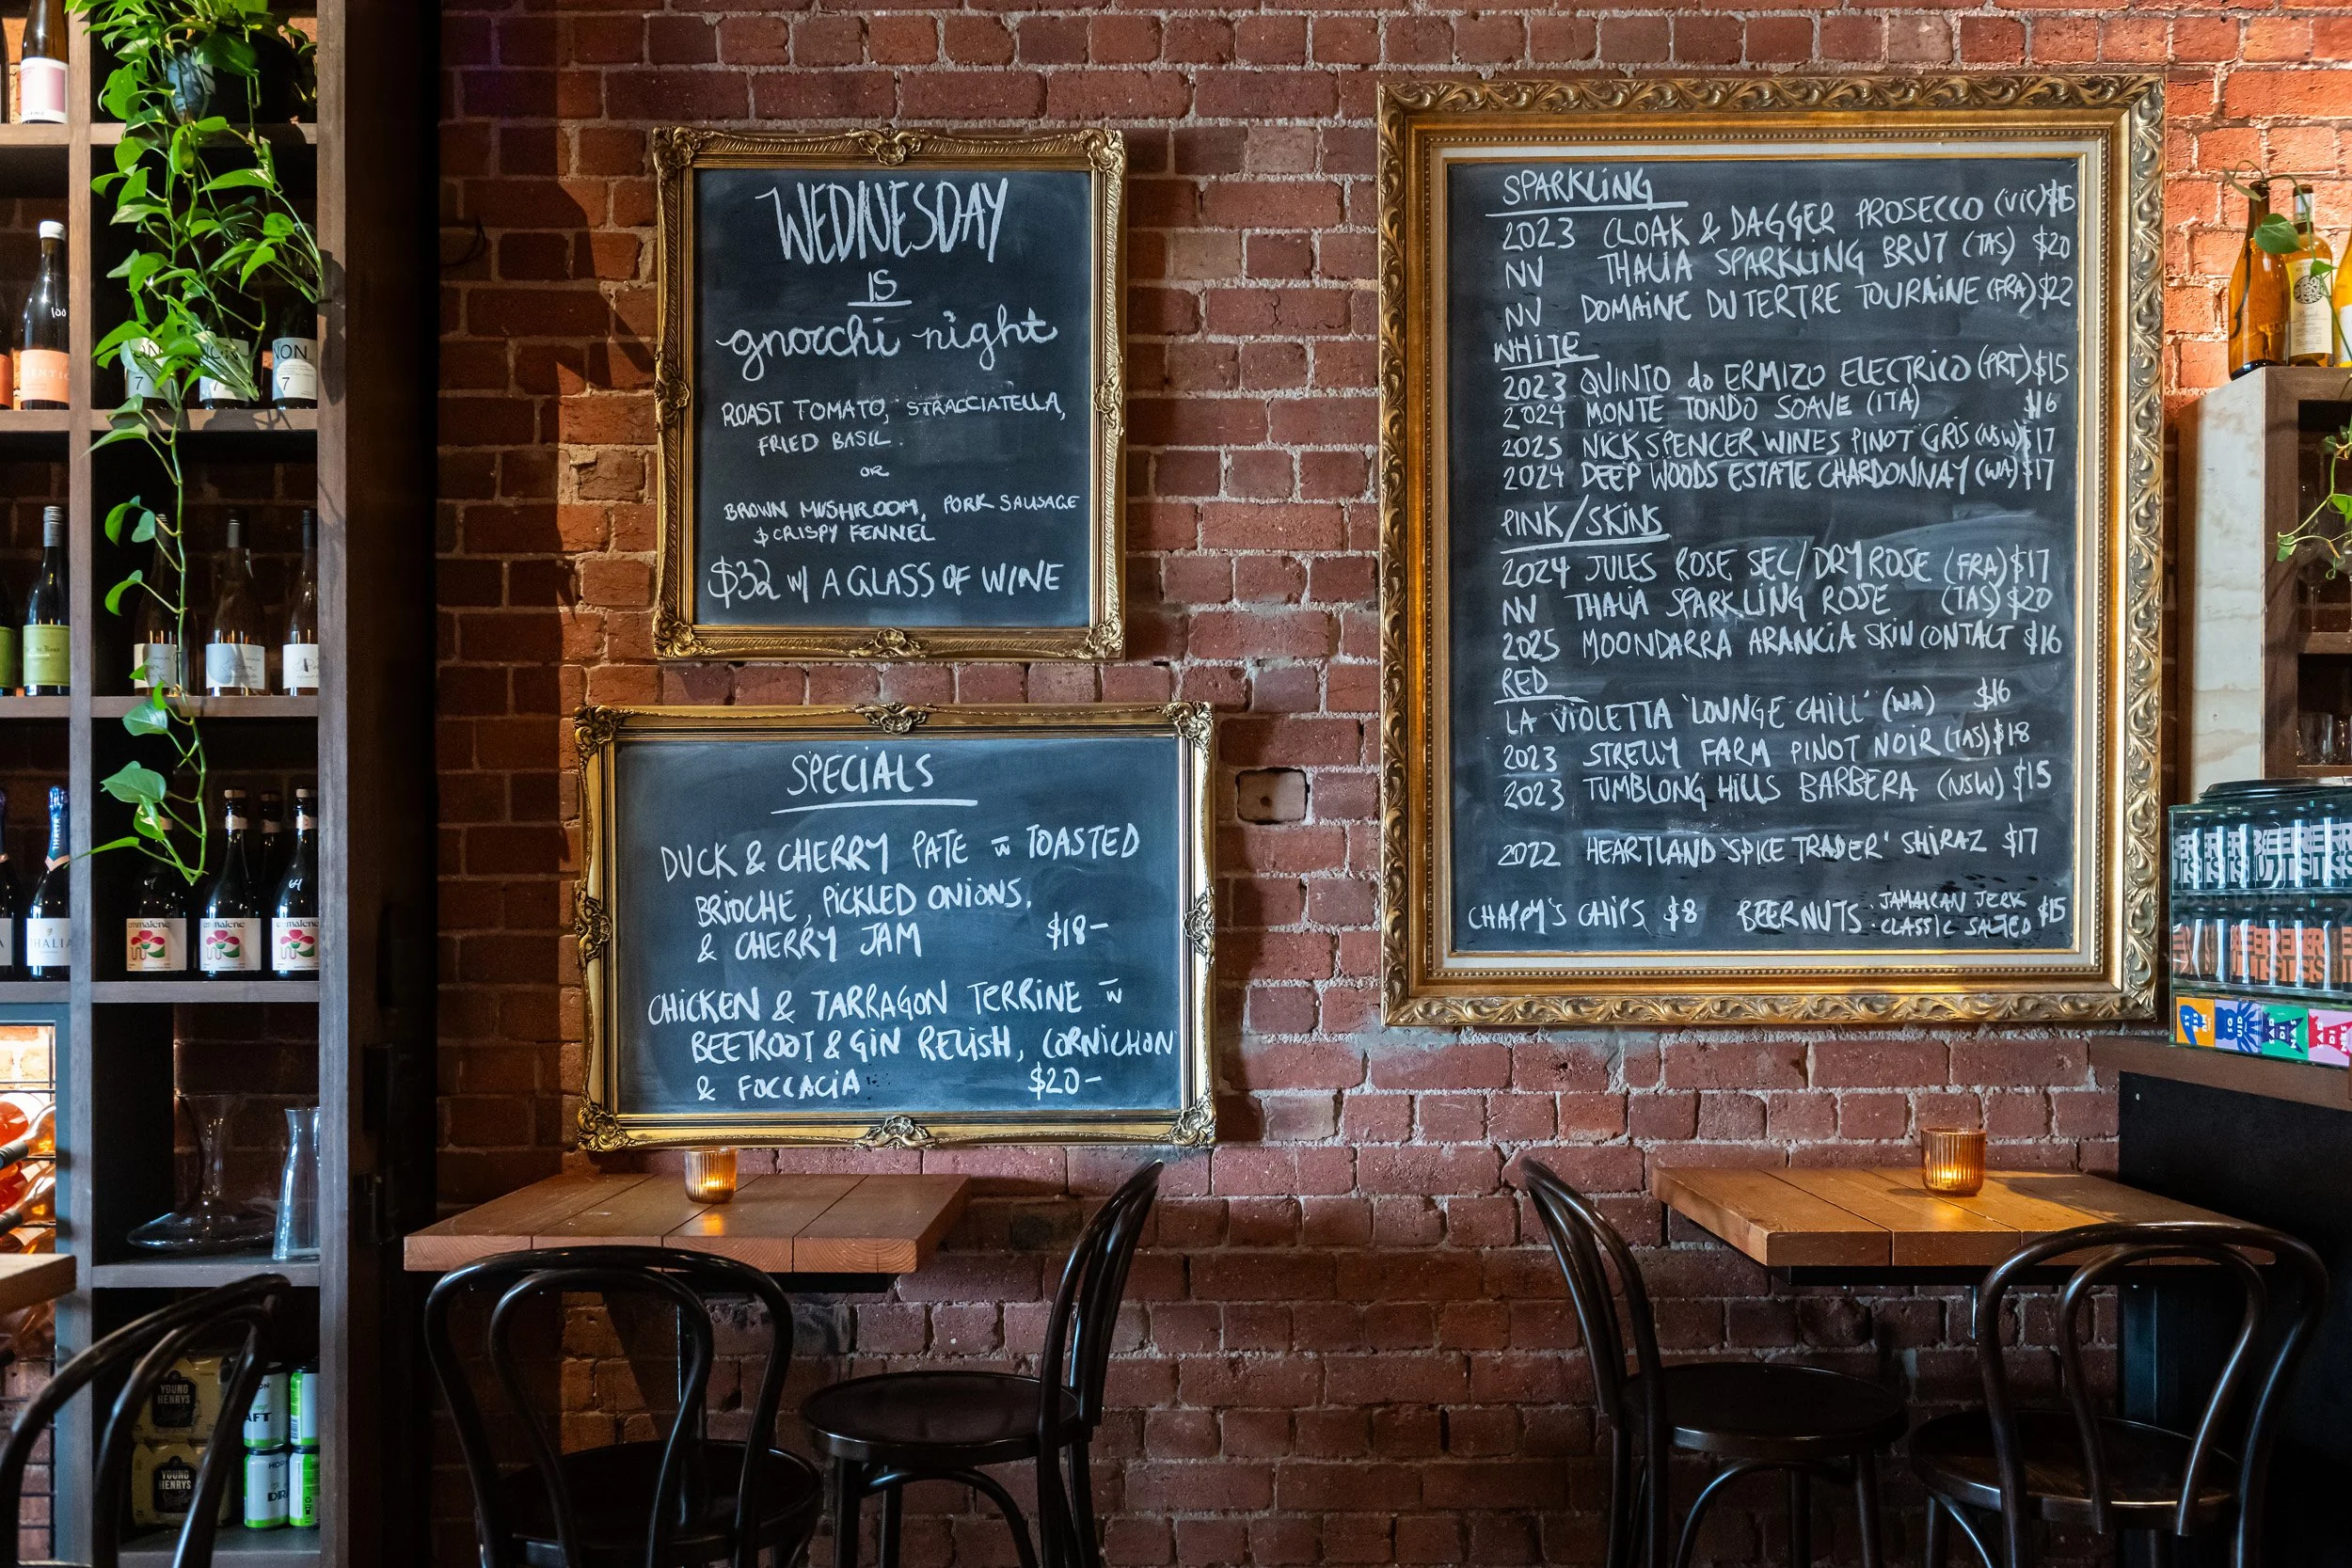 WEDNESDAY
IS
gnocchi night
ROAST TOMATO, STRACCIATELLA,
FRIED BASIL.
OR
BROWN MUSHROOM, PORK SAUSAGE
& CRISPY FENNEL
$32 w/ A GLASS OF WINE
SPECIALS
DUCK & CHERRY PATE w TOASTED
BRIOCHE, PICKLED ONIONS,
& CHERRY JAM $18-
CHICKEN & TARRAGON TERRINE w
BEETROOT & GIN RELISH, CORNICHON
& FOCCACIA $20-
SPARKLING
2023 CLOAK & DAGGER PROSECCO (VIC) $16
NV THALIA SPARKLING BRUT (TAS) $20
NV DOMAINE DU TERTRE TOURAINE (FRA) $22
WHITE
2023 QUINTO do ERMIZO ELECTRICO (PRT) $15
2024 MONTE TONDO SOAVE (ITA) $16
2025 NICK SPENCER WINES PINOT GRIS (NSW) $17
2024 DEEP WOODS ESTATE CHARDONNAY (WA) $17
PINK/SKINS
2024 JULES ROSE SEC/DRY ROSE (FRA) $17
NV THALIA SPARKLING ROSE (TAS) $20
2025 MOONDARRA ARANCIA SKIN CONTACT $16
RED
LA VIOLETTA 'LOUNGE CHILL' (WA) $16
2023 STRELLY FARM PINOT NOIR (TAS) $18
2023 TUMBLONG HILLS BARBERA (NSW) $15
2022 HEARTLAND 'SPICE TRADER' SHIRAZ $17
CHAPPY'S CHIPS $8 BEER NUTS · JAMAICAN JERK $15
· CLASSIC SALTED
NON
7
THALIA
YOUNG
HENRYS
YOUNG
HENRYS